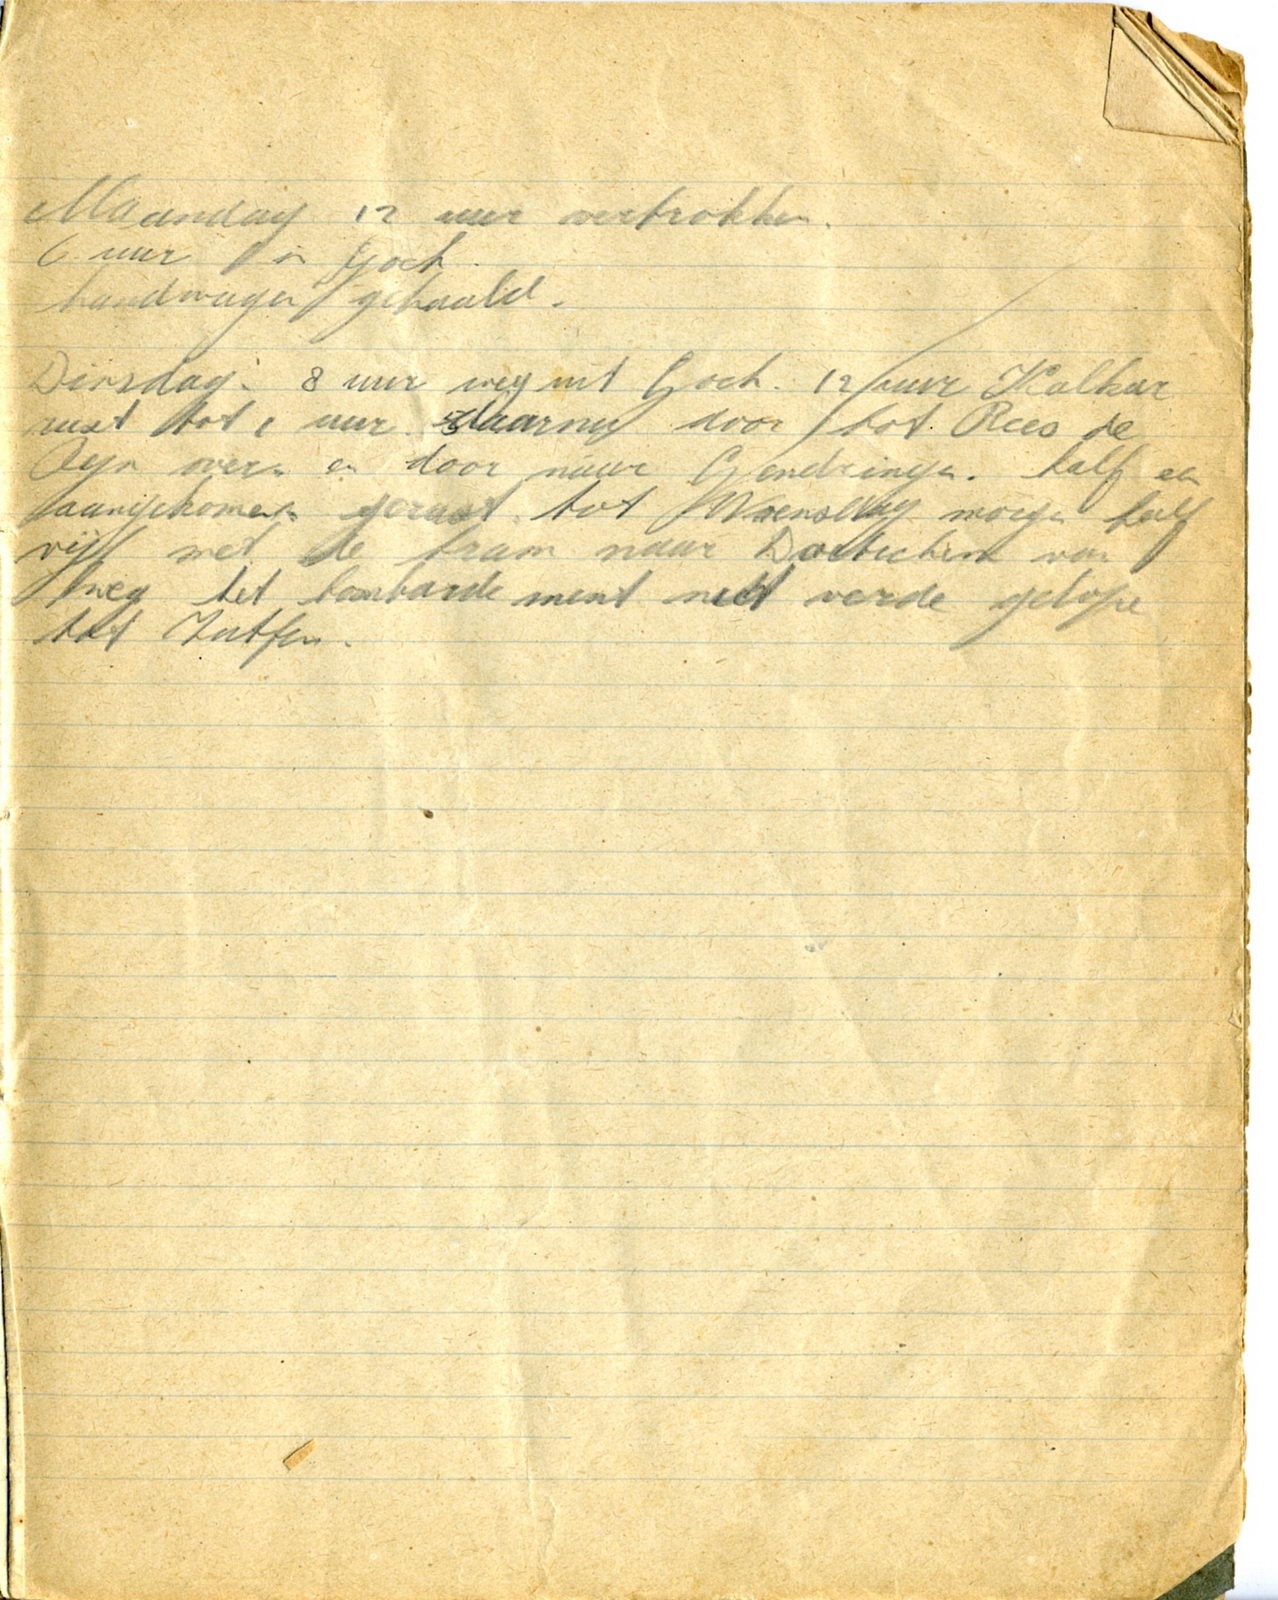 Maandag 12 uur vertrokken.
6 uur in Goch.
handwagen gehaald.
Dinsdag. 8 uur weg uit Goch. 12 uur Kalkar
rust tot 1 uur daarna door tot Rees de
Ryn over en door naar Gendringen. half een
aangekomen gerust tot Woensdag morgen half
vijf met de tram naar Doetichem van
weg het bombardement niet verde gelope
tot Zutfen.